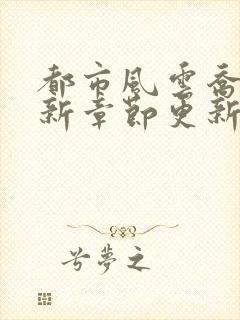 都市風雲喬
新章節更新
兮夢之